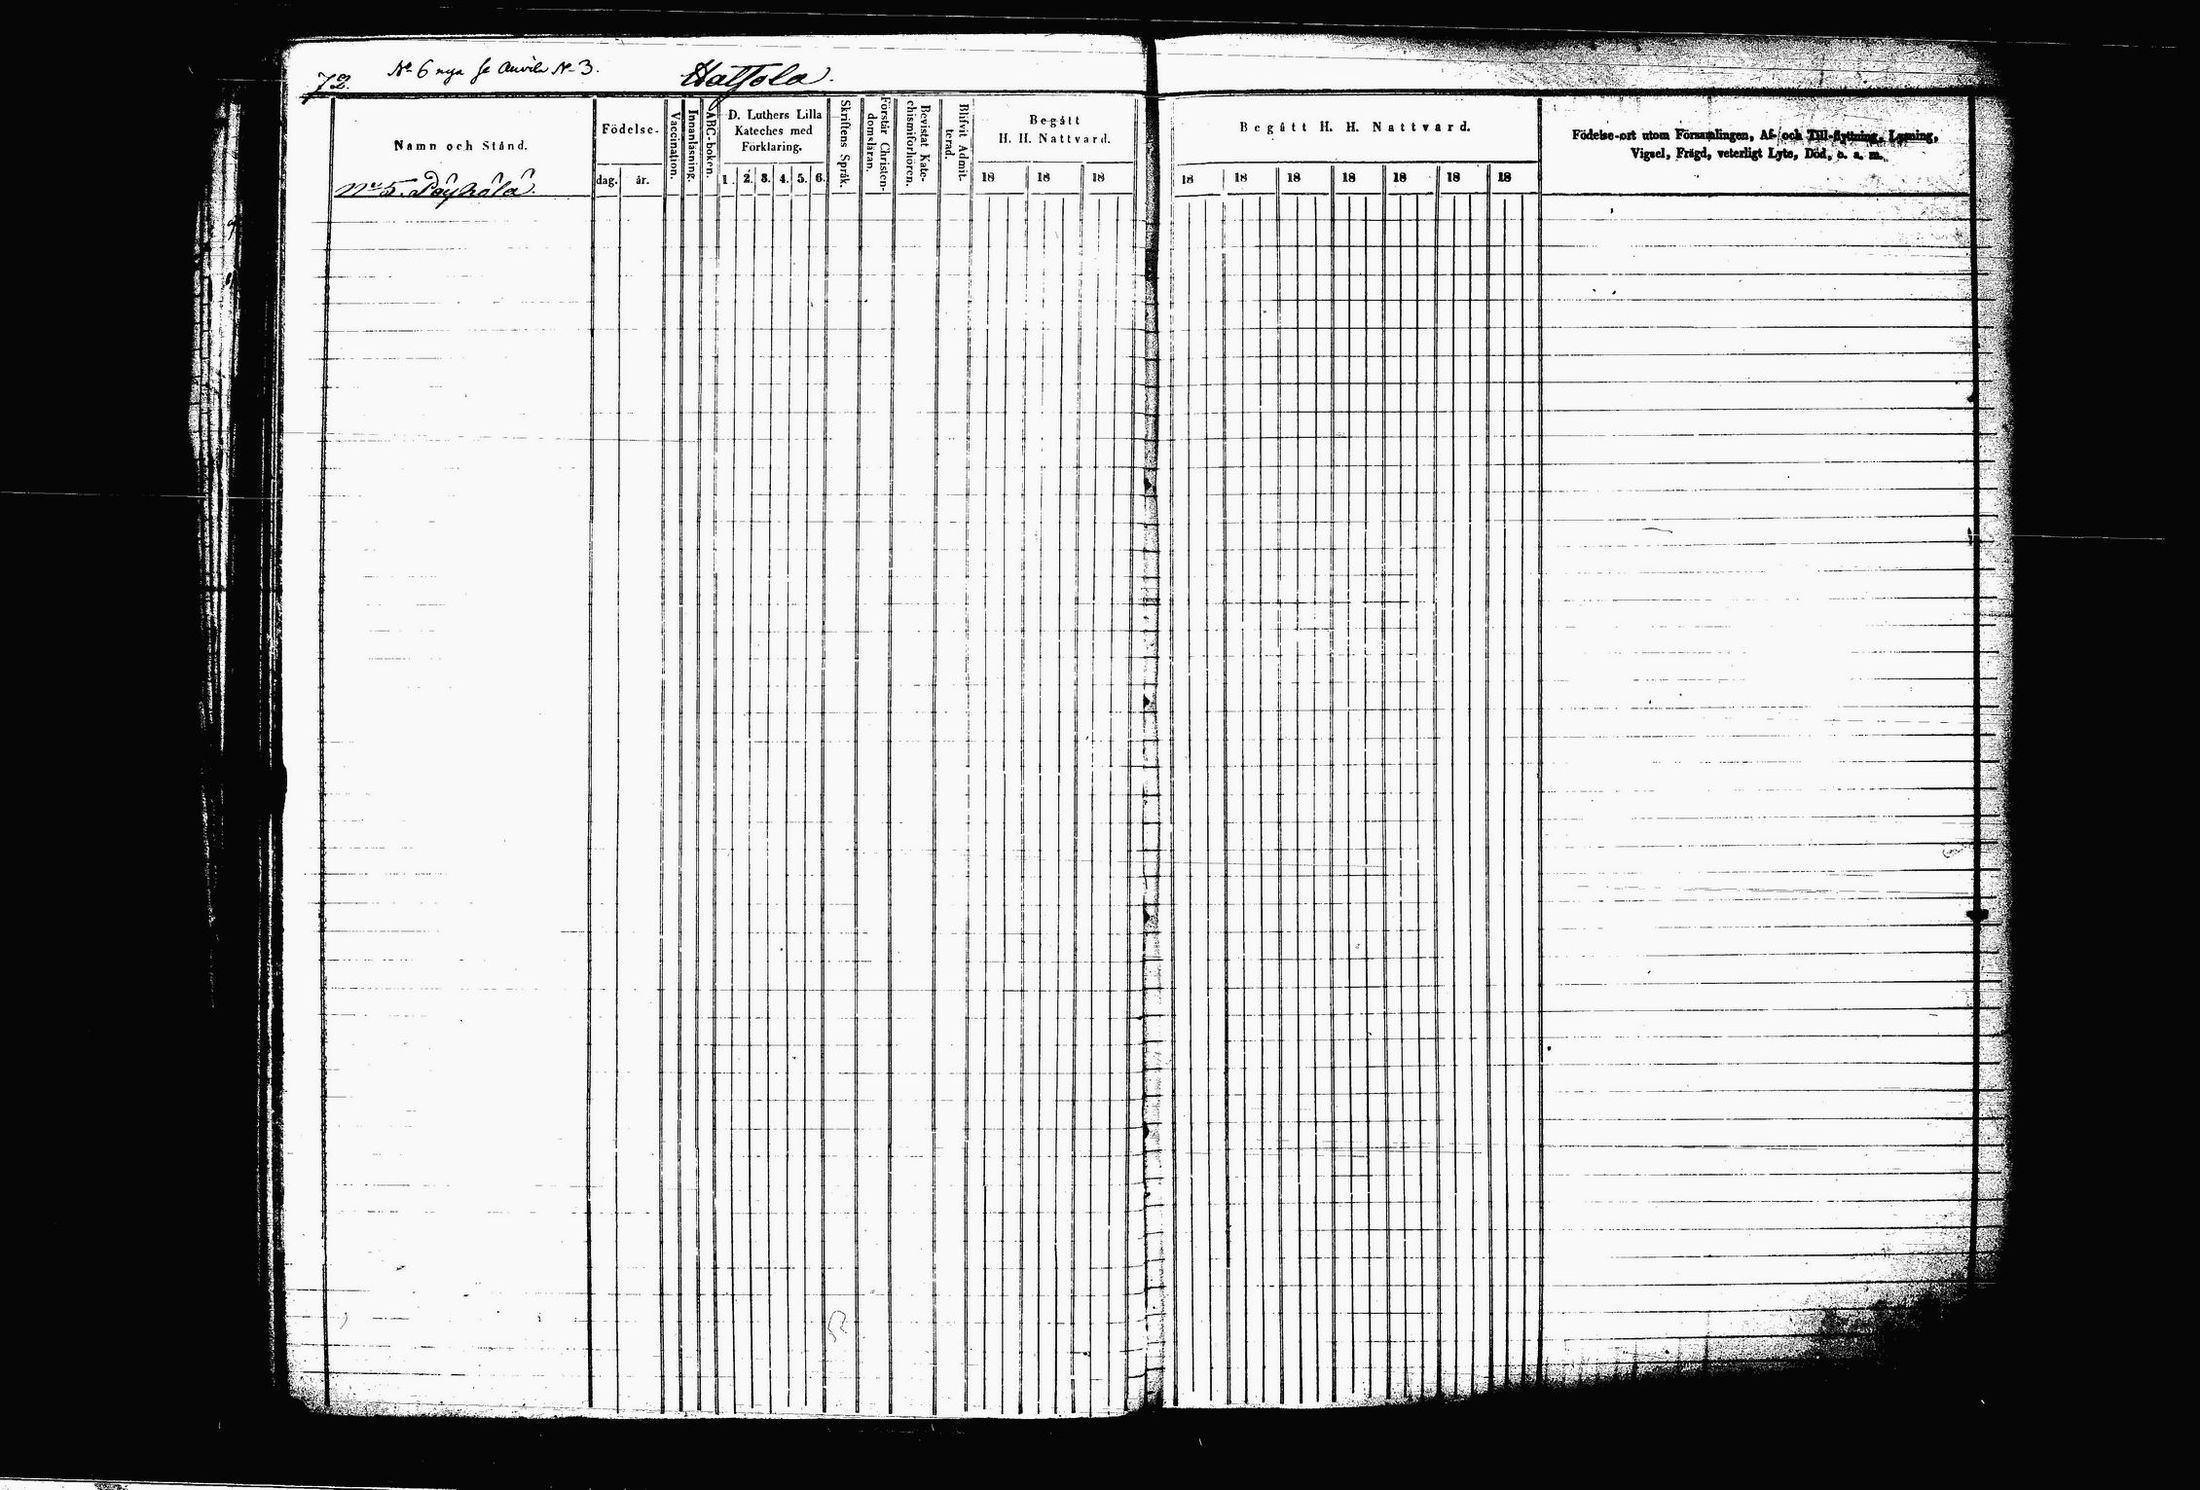 72. No 6 nya se Anvila No 3. Hatsola.
Namn och Stånd.
No 5. Päyhölä.
Födelse-
dag. år.
Vaccination.
Innanläsning.
ABC-boken.
D. Luthers Lilla
Kateches med
Förklaring.
1. 2. 3. 4. 5. 6.
Skriftens Språk.
Förstår Christen-
domsläran.
Bevistat Kate-
chismiförhören.
Blifvit Admit-
terad.
Begått
H. H. Nattvard.
18 18 18
Begått H. H. Nattvard.
18 18 18 18 18 18 18
Födelse-ort utom Församlingen, Af- och Till-flyttning, Lysning,
Vigsel, Frägd, veterligt Lyte, Död, o. s. m.